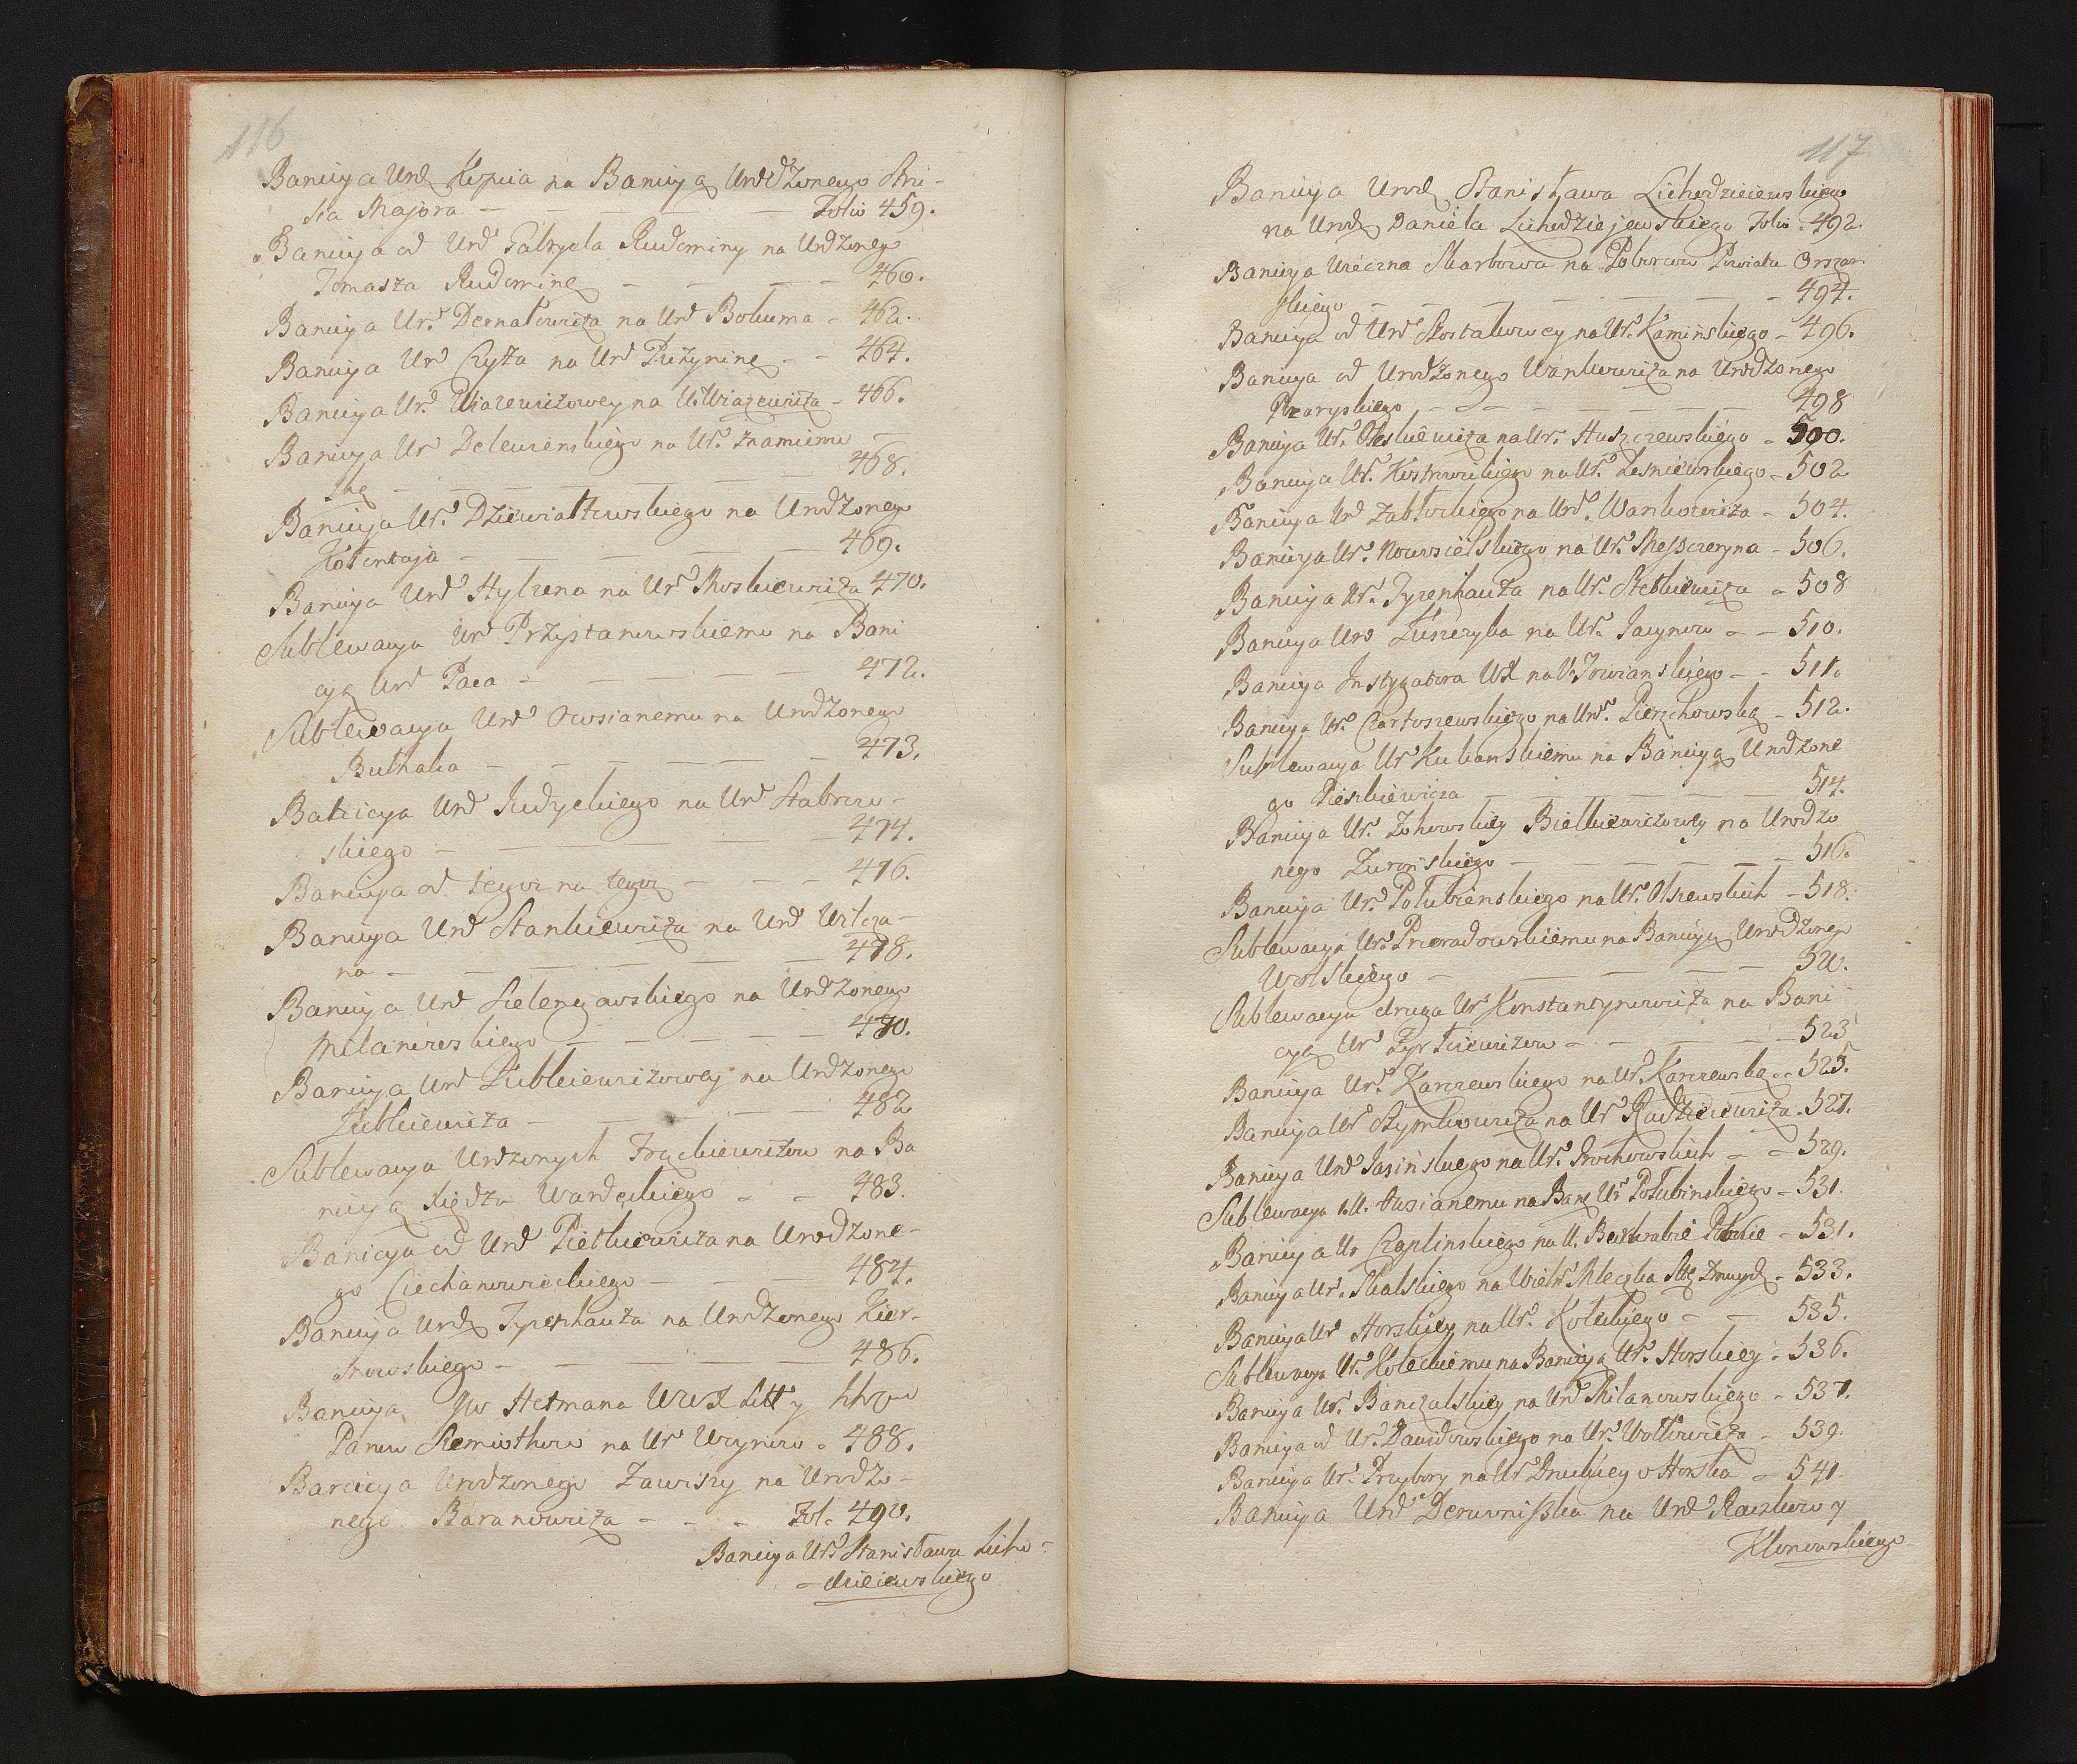 116
Banicya Urd Kopcia na Banicyą Urodzonego Stri-
sia Majora — — — — — Folio 459.
Banicya od Urd Gabryela Rudominy na Urdzonego
Tomasza Rudominę — — — — 460.
Banicya Ur. Dernałowicza na Urd Bohuma - 462.
Banicya Urd Czyża na Urd Puzyninę - - 464.
Banicya Ur. Wiazewiczowey na U. Wiazewicza - 466.
Banicya Ur Delewienskiego na Ur. Znamierow
ską — — — — — — 468.
Banicya Ur. Dziewiałtowskiego na Urodzonego
Kołontaja — — — — — 469.
Banicya Urd Hylzena na Ur Moskiewicza 470.
Sublewacya Urd Przystanowskiemu na Bani
cyą Urd Paca — — — — — 472.
Sublewacya Urd Owsianemu na Urodzonego
Buthaka — — — — — 473.
Banicya Urd Judyckiego na Urd Stabrow-
skiego — — — — — 474.
Banicya od tegoż na tegoż — — — 476.
Banicya Urd Stankiewicza na Urd Wilcza-
na — — — — — — 478.
Banicya Urd Sielengowskiego na Urdzonego
Milanowskiego — — — — — 480.
Banicya Urd Lublkiewiczowey na Urdzonego
Jublkiewicza — — — — 482
Sublewacya Urdzonych Frąckiewiczow na Ba
nicyą Xiędza Wardęckiego - - 483.
Banicya od Urd Pietkiewicza na Urodzone-
go Ciechanowieckiego — — — 484.
Banicya Urd Tyzenhauza na Urodzonego Kier-
snowskiego — — — — — 486.
Banicya JW Hetmana WWXLitt y
Panow Siemiothow na Ur Wrynow - 488.
Banicya Urodzonego Zawiszy na Urodzo-
nego Baranowicza - - - Fol. 490.
Banicya Ur. Stanisława Licho-
-dzieiewskiego
117
Banicya Urod Stanisława Lichodzieiewskiego
na Urod Daniela Lichodziejewskiego Folio 492.
Banicya Wieczna Skarbowa na Poborcow Powiatu Orszan
skiego — — — — — — 494.
Banicya od Urd Szostakowey na Ur. Kaminskiego - 496.
Banicya od Urodzonego Wankowicza na Urodzonego
Pzaryskiego — — — — — — 498
Banicya Ur. Oleskiewicza na Ur. Huszczewskiego - 500.
Banicya Ur. Kostrowickiego na Ur. Lesniewskiego - 502
Banicya Urd Zabłockiego na Urd. Wankowicza - 504.
Banicya Ur. Nowosielskiego na Ur. Meszczeryna - 506.
Banicya Ur. Tyzenhauza na Ur. Stetkiewicza - 508
Banicya Urd Zuszczyka na Ur. Jacynow - - 510.
Banicya Instygatora WX na U. Towianskiego - - 511.
Banicya Ur. Czartoszewskiego na Urd. Pierzchowską - 512.
Sublewacya Ur Kubanskiemu na Banicyą Urodzone
go Pieszkiewicza — — — — — 514.
Banicya Ur. Zohowskiey Bielkiewiczowey na Urodzo
nego Zuronskiego — — — — — 516.
Banicya Ur. Połubienskiego na Ur. Olszewskich - 518.
Sublewacya Ur. Przeradowskiemu na Banicyą Urodzonego
Wolskiego — — — — — 520.
Sublewacya druga Ur Konstantynowicza na Bani
cyą Ur Zyrkiewiczow - - - - - 523
Banicya Ur. Karczewskiego na Ur. Karczewską - - 525.
Banicya Ur Szymkowicza na Ur Radziewicza - 527.
Banicya Urd Jasinskiego na Ur. Prochowskich - - 529.
Sublewacya U. Owsianemu na Banę Ur Połubinskiego - 531.
Banicya Ur Czaplinskiego na U. Beykrabie Pobcie - 531.
Banicya Ur. Skalskiego na Wielm Kleczka Stę Zmuydz - 533.
Banicya Ur Horskiey na Ur. Koteckiego - - 535.
Sublewacya Ur. Koteckiemu na Banicyą Ur. Horskiey - 536.
Banicya Ur. Banczalskiey na Urd Milanowskiego - 537.
Banicya od Ur. Dawidowskiego na Ur. Wołłowicza - 539.
Banicya Ur. Przybory na Ur Druckiego Horska - 541
Banicya Urd Derewniszka na Urd Raczkow y
Klonowskiego